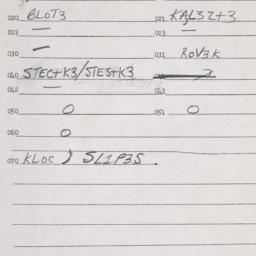 020 BLOT3 021 KAL32+3
022 — 023 —
030 — 031 ROV3K
040 STEC+K3/STES+K3
042 — 043
050 O 051 O
060 O
070 KLOC ) SL1P3S .